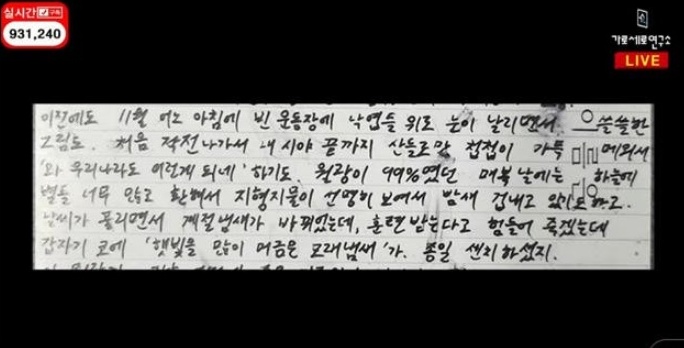 실시간 구독
931,240
가로세로연구소
LIVE
이전에도 11월 어느 아침에 빈 운동장에 낙엽들 위로 눈이 날리면서 쓸쓸한
그림도. 처음 작전나가서 내 시야 끝까지 산들로만 첩첩이 가득 메워서
'와 우리나라도 이렇게 되네' 하기도. 월광이 99%였던 매복날에는 하늘에
별들 너무 많고 환해서 지형지물이 선명히 보여서 밤새 겁내고 있기도하고.
날씨가 풀리면서 계절냄새가 바뀌었는데, 훈련받는다고 힘들어 죽겠는데
갑자기 코에 '햇빛을 많이 머금은 모래냄새'가. 종일 센치하셨지.